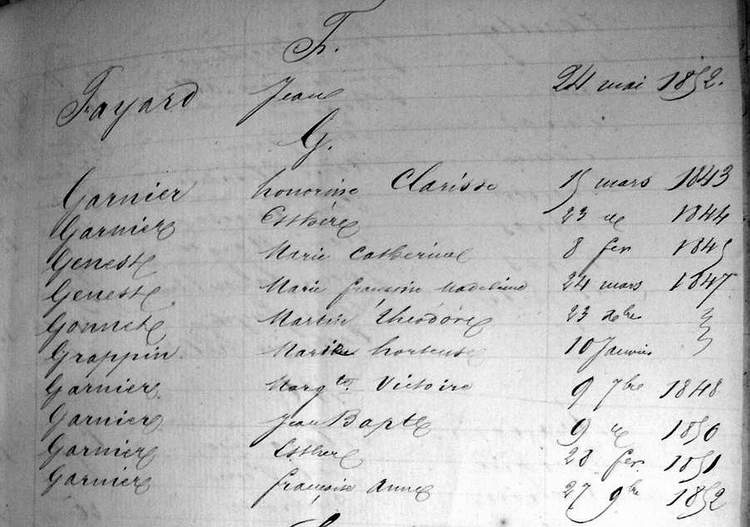 F.
Fayard Jean 24 mai 1852.
G.
Garnier honorine Clarisse 15 mars 1843
Garnier Esthère 23 1844
Geneste Marie Catherine 8 fev 1845
Geneste Marie françoise Madeleine 24 mars 1847
Gonnet Martin Théodore 23 xbre "
Grappin Marie hortense 10 Janvier "
Garnier Margte Victoire 9 7bre 1848
Garnier Jean Bapte 9 1850
Garnier Esther 28 fev 1851
Garnier françoise Anne 27 9bre 1852